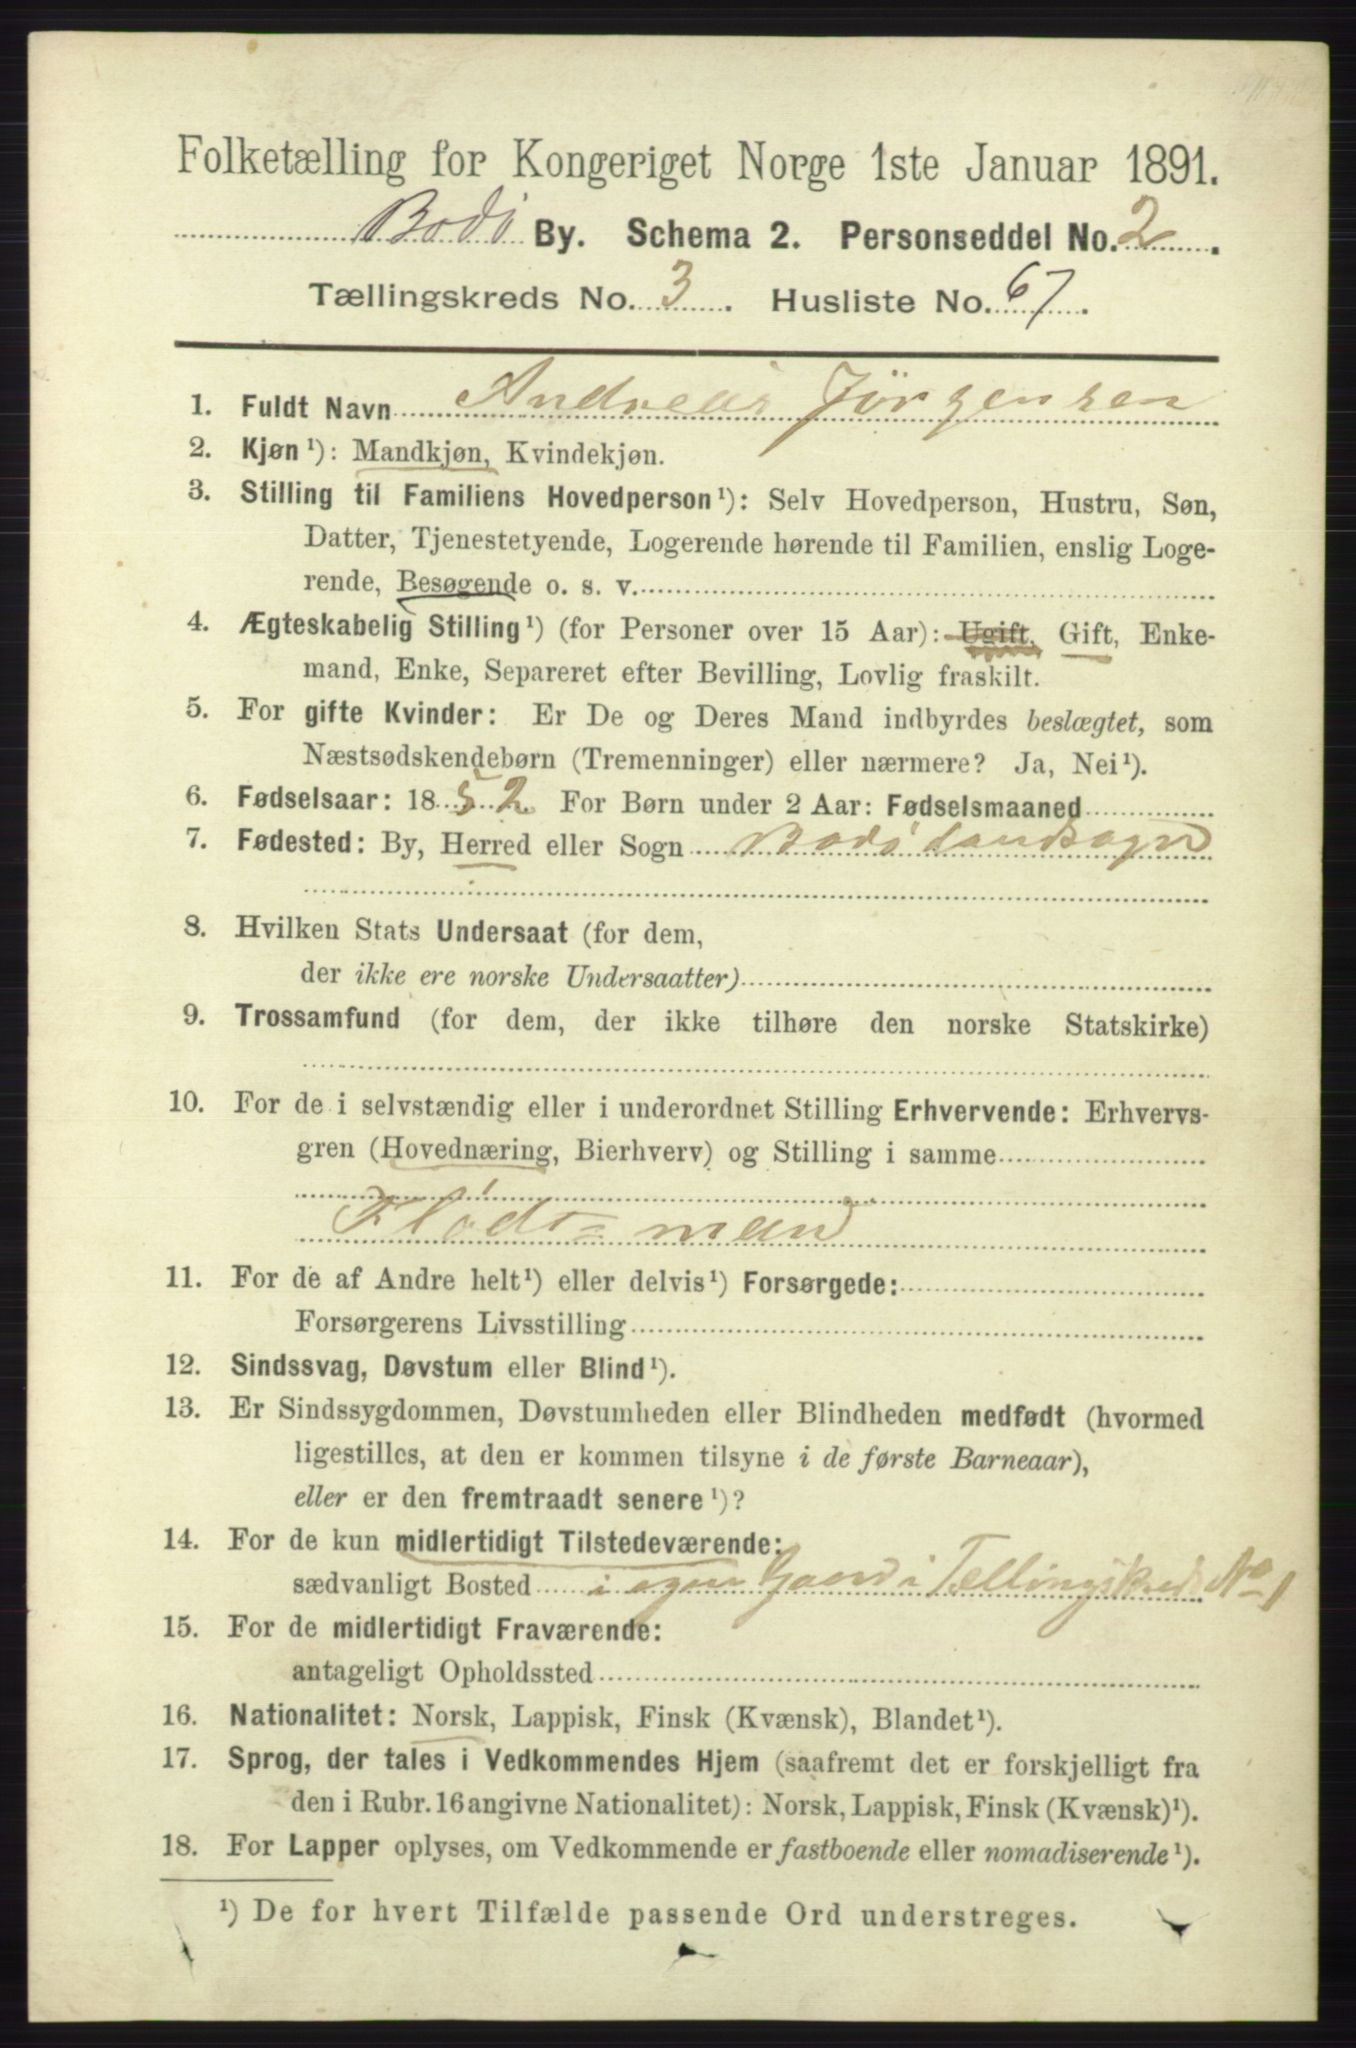 Folketælling for Kongeriget Norge 1ste Januar 1891.
Bodö By. Schema 2. Personseddel No. 2.
Tællingskreds No. 3. Husliste No. 67.
1. Fuldt Navn Andreas Jörgensen
2. Kjøn ¹): Mandkjøn, Kvindekjøn.
3. Stilling til Familiens Hovedperson ¹): Selv Hovedperson, Hustru, Søn,
Datter, Tjenestetyende, Logerende hørende til Familien, enslig Loge-
rende, Besøgende o. s. v.
4. Ægteskabelig Stilling ¹) (for Personer over 15 Aar): Ugift, Gift, Enke-
mand, Enke, Separeret efter Bevilling, Lovlig fraskilt.
5. For gifte Kvinder: Er De og Deres Mand indbyrdes beslægtet, som
Næstsødskendebørn (Tremenninger) eller nærmere? Ja, Nei ¹).
6. Fødselsaar: 1852 For Børn under 2 Aar: Fødselsmaaned
7. Fødested: By, Herred eller Sogn Bodö Landsogn
8. Hvilken Stats Undersaat (for dem,
der ikke ere norske Undersaatter)
9. Trossamfund (for dem, der ikke tilhøre den norske Statskirke)
10. For de i selvstændig eller i underordnet Stilling Erhvervende: Erhvervs-
gren (Hovednæring, Bierhverv) og Stilling i samme
Flödt=mand
11. For de af Andre helt ¹) eller delvis ¹) Forsørgede:
Forsørgerens Livsstilling
12. Sindssvag, Døvstum eller Blind ¹).
13. Er Sindssygdommen, Døvstumheden eller Blindheden medfødt (hvormed
ligestilles, at den er kommen tilsyne i de første Barneaar),
eller er den fremtraadt senere ¹)?
14. For de kun midlertidigt Tilstedeværende:
sædvanligt Bosted i egen Gaard i Tællingskreds No 1
15. For de midlertidigt Fraværende:
antageligt Opholdssted
16. Nationalitet: Norsk, Lappisk, Finsk (Kvænsk), Blandet ¹).
17. Sprog, der tales i Vedkommendes Hjem (saafremt det er forskjelligt fra
den i Rubr. 16 angivne Nationalitet): Norsk, Lappisk, Finsk (Kvænsk) ¹).
18. For Lapper oplyses, om Vedkommende er fastboende eller nomadiserende ¹).
¹) De for hvert Tilfælde passende Ord understreges.